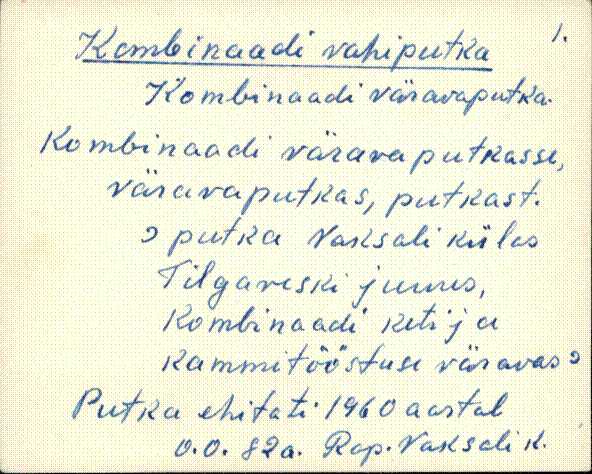 1.
Kombinaadi vahiputka
Kombinaadi väravaputka.
Kombinaadi väravaputkasse,
väravaputkas, putkast.
putka Vaksali külas
Tilgaveski juures,
Kombinaadi keti ja
kammitööstuse väravas
Putka ehitati 1960 aastal
82a. Rap. Vaksali k.